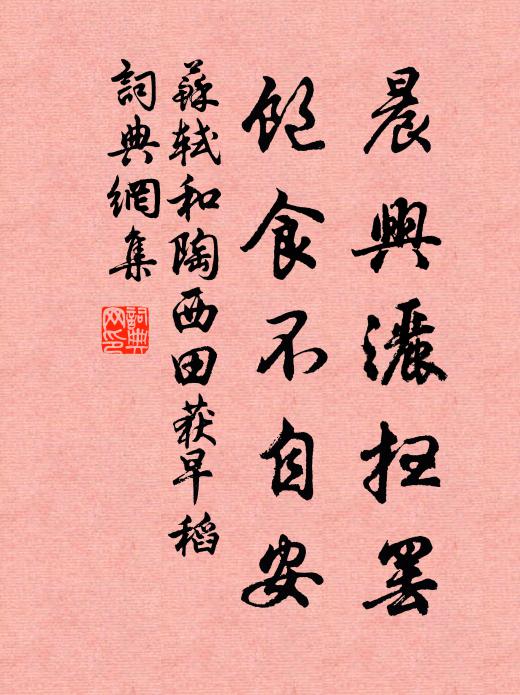 晨興灑掃罷
飽食不自安
蘇軾和陶西田获早稻
詞典網集
詞典
网印